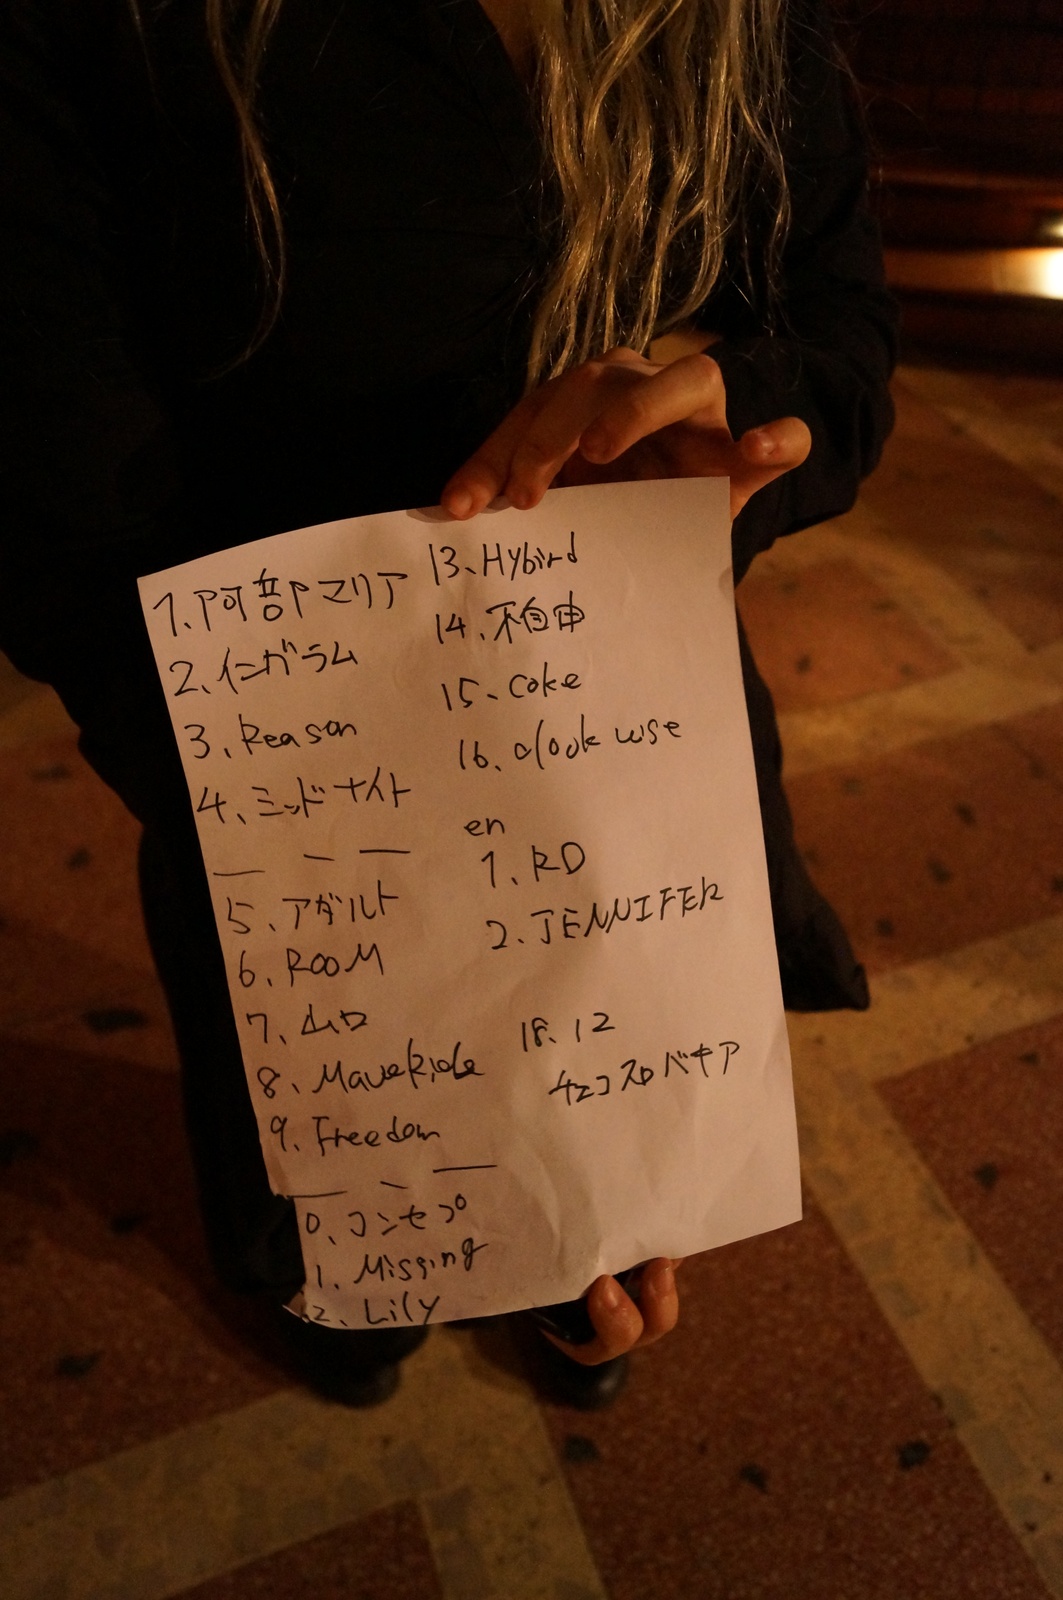 1、阿部マリア
2、インガラム
3、Reason
4、ミッドナイト
5、アダルト
6、ROOM
7、山口
8、Maverick
9、Freedom
0、コンセプ
1、Missing
2、Lily
13、Hybird
14、不自由
15、Coke
16、clock wise
en
1、RD
2、JENNIFER
18、12
チェコスロバキア